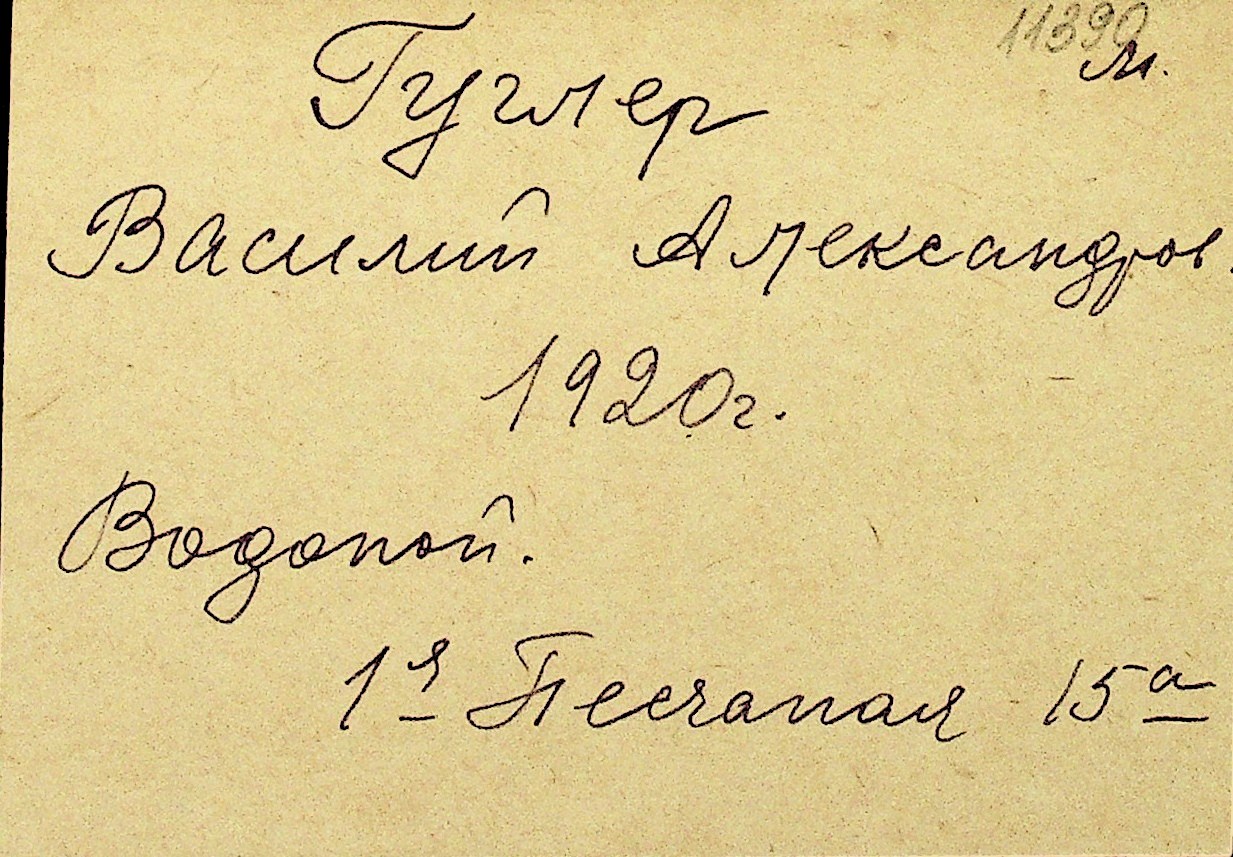 11390
м.
Гуглер
Василий Александров.
1920г.
Водопой.
1я Песчаная 15а